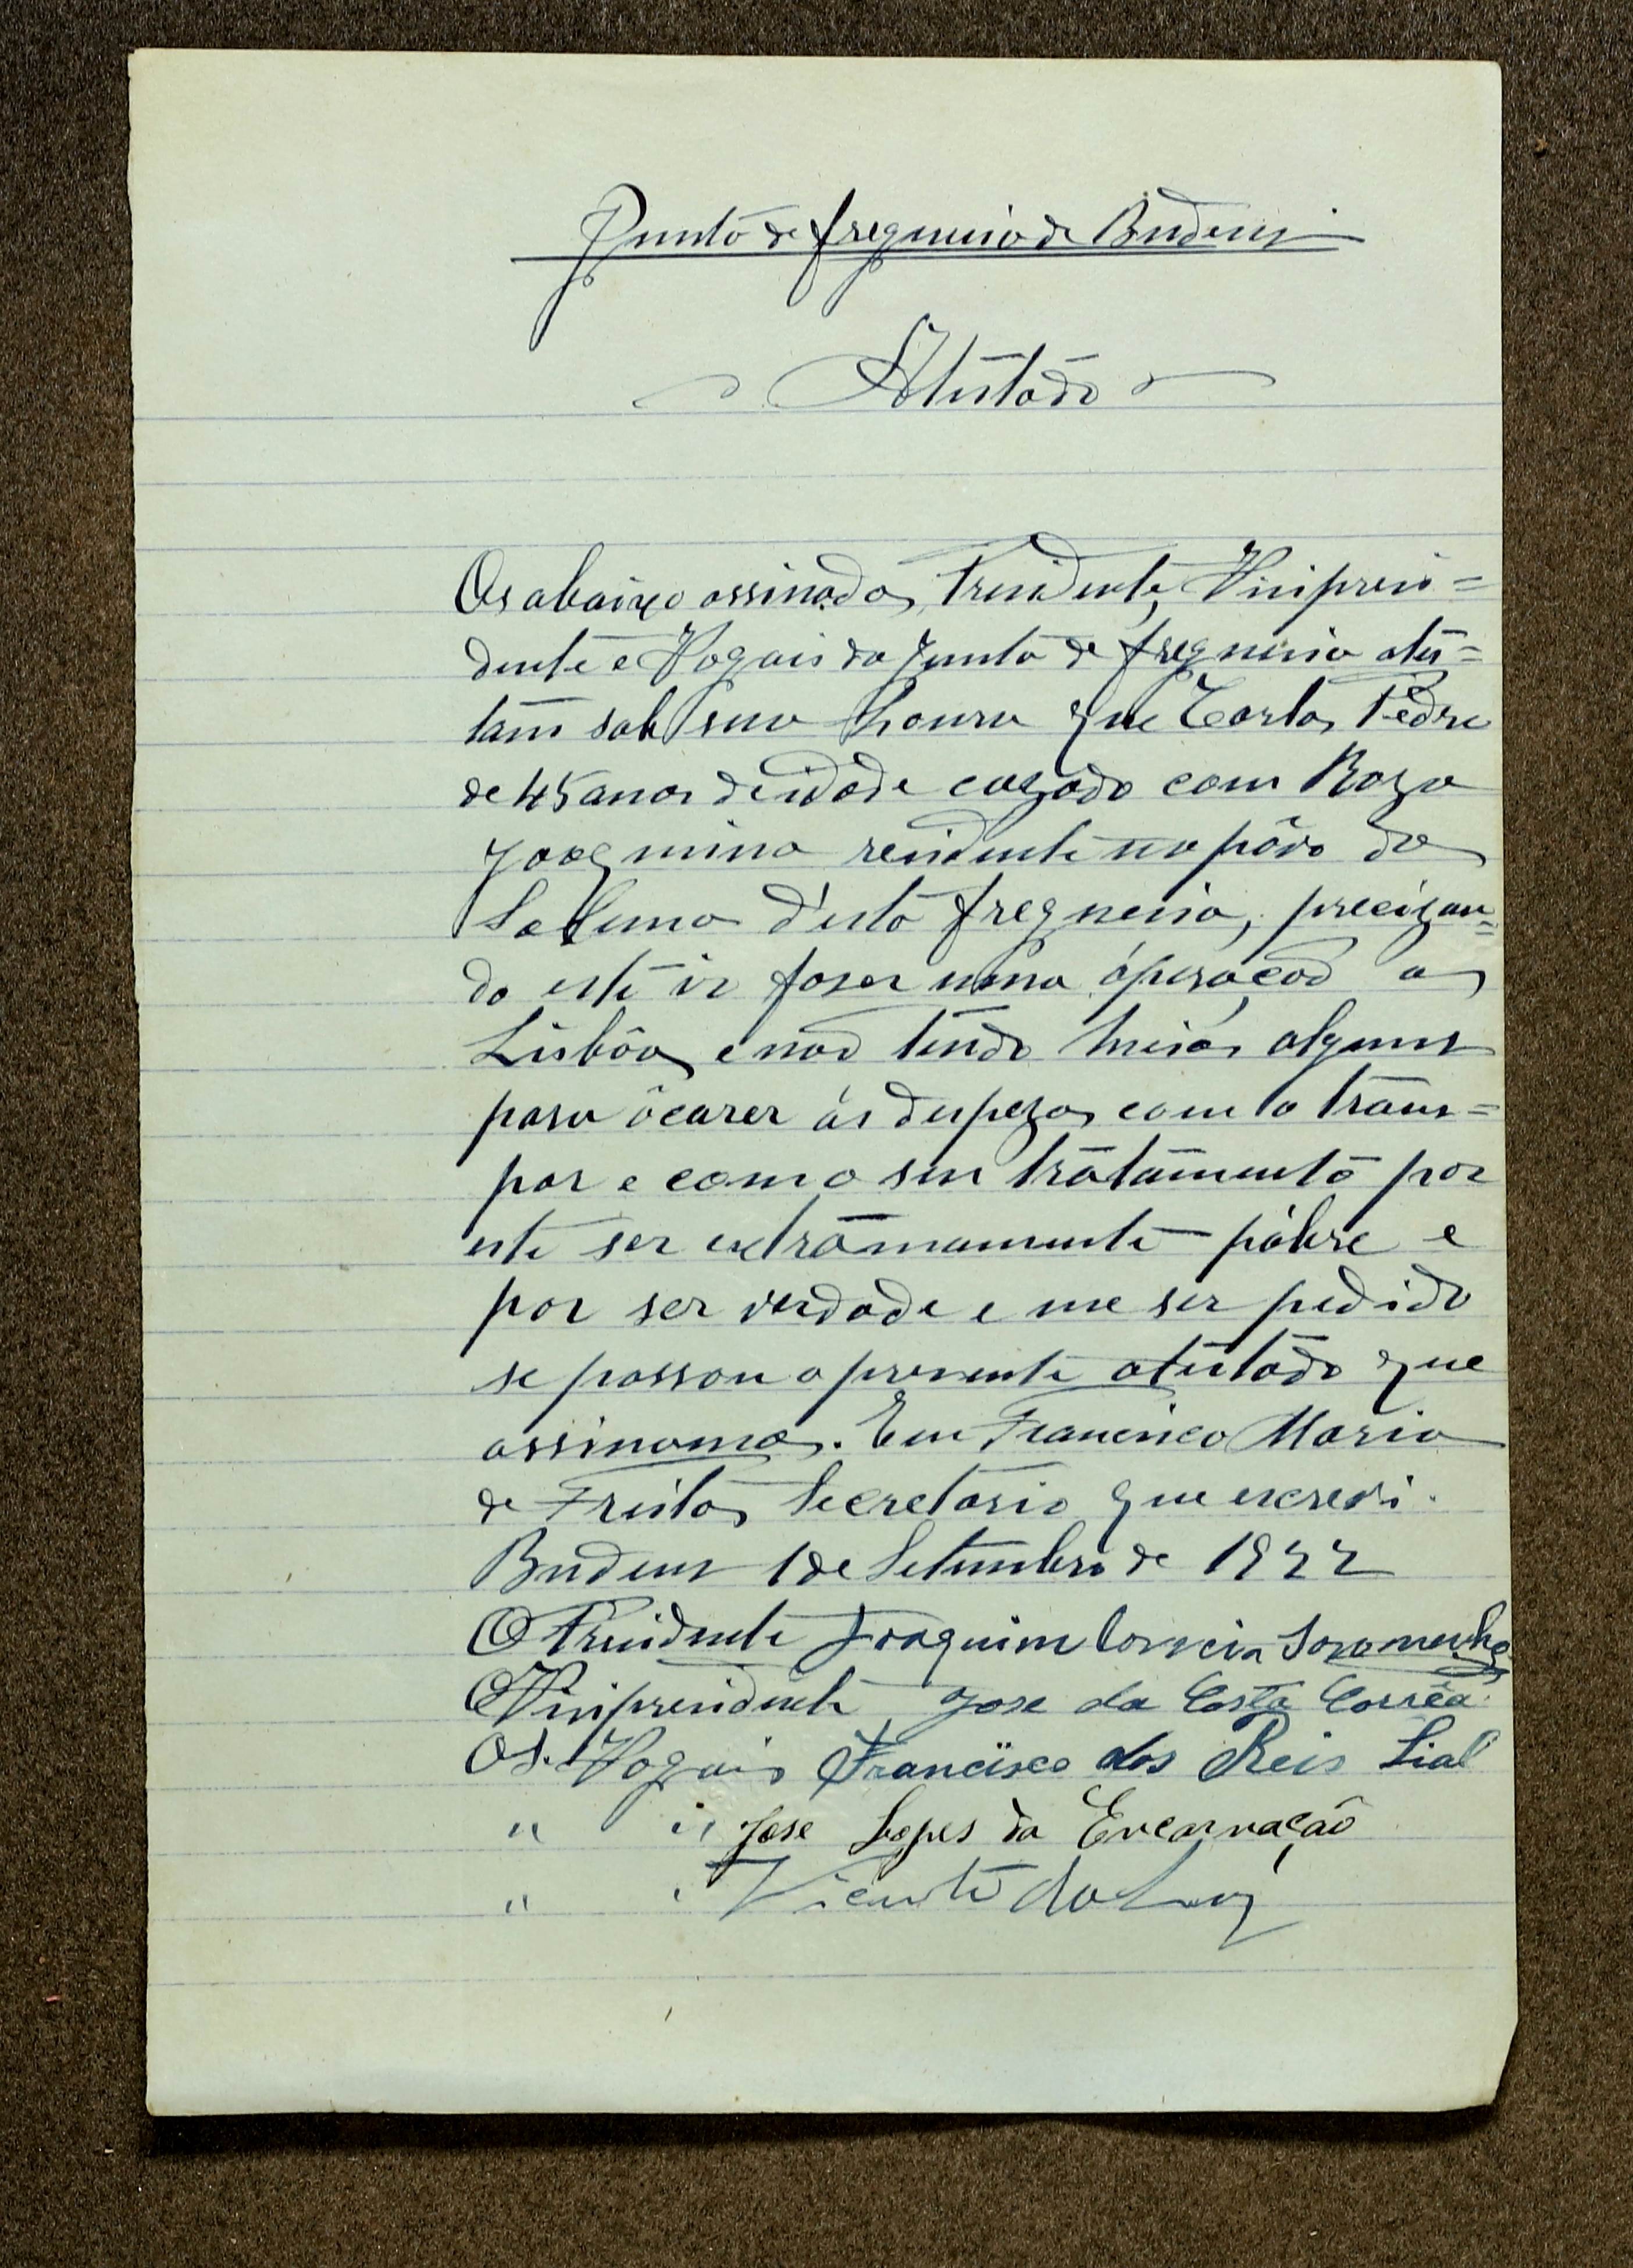 Junta de freguesia de Budens
Atestado
Os abaixo assinados, Presidente, Vicipresi=
dente e Vogais da Junta de freguesia ates=
tam sob sua honra que Carlos Pedro
de 45 anos de idade cazado com Roza
Joaquina residente no pôvo da
Salema d'esta freguesia, precizan=
do este ir faser uma óperação a
Lisbôa, e não tendo meios alguns
para ôcarer ás despezas com o trans=
por e com o seu tratamento por
este ser extramamente póbre e
por ser verdade e me ser pedido
se passou o presente atestado que
assinamos. Eu Francisco Maria
de Freitas, Secretario que escrevi.
Budens 1 de Setembro de 1922
O Presidente Joaquim Correia
O Vicipresidente Jose da Costa Corrêa
Os Vogais Francisco dos Reis Lial
" " Jose Lopes da Encarnação
" " Vicente da Luz